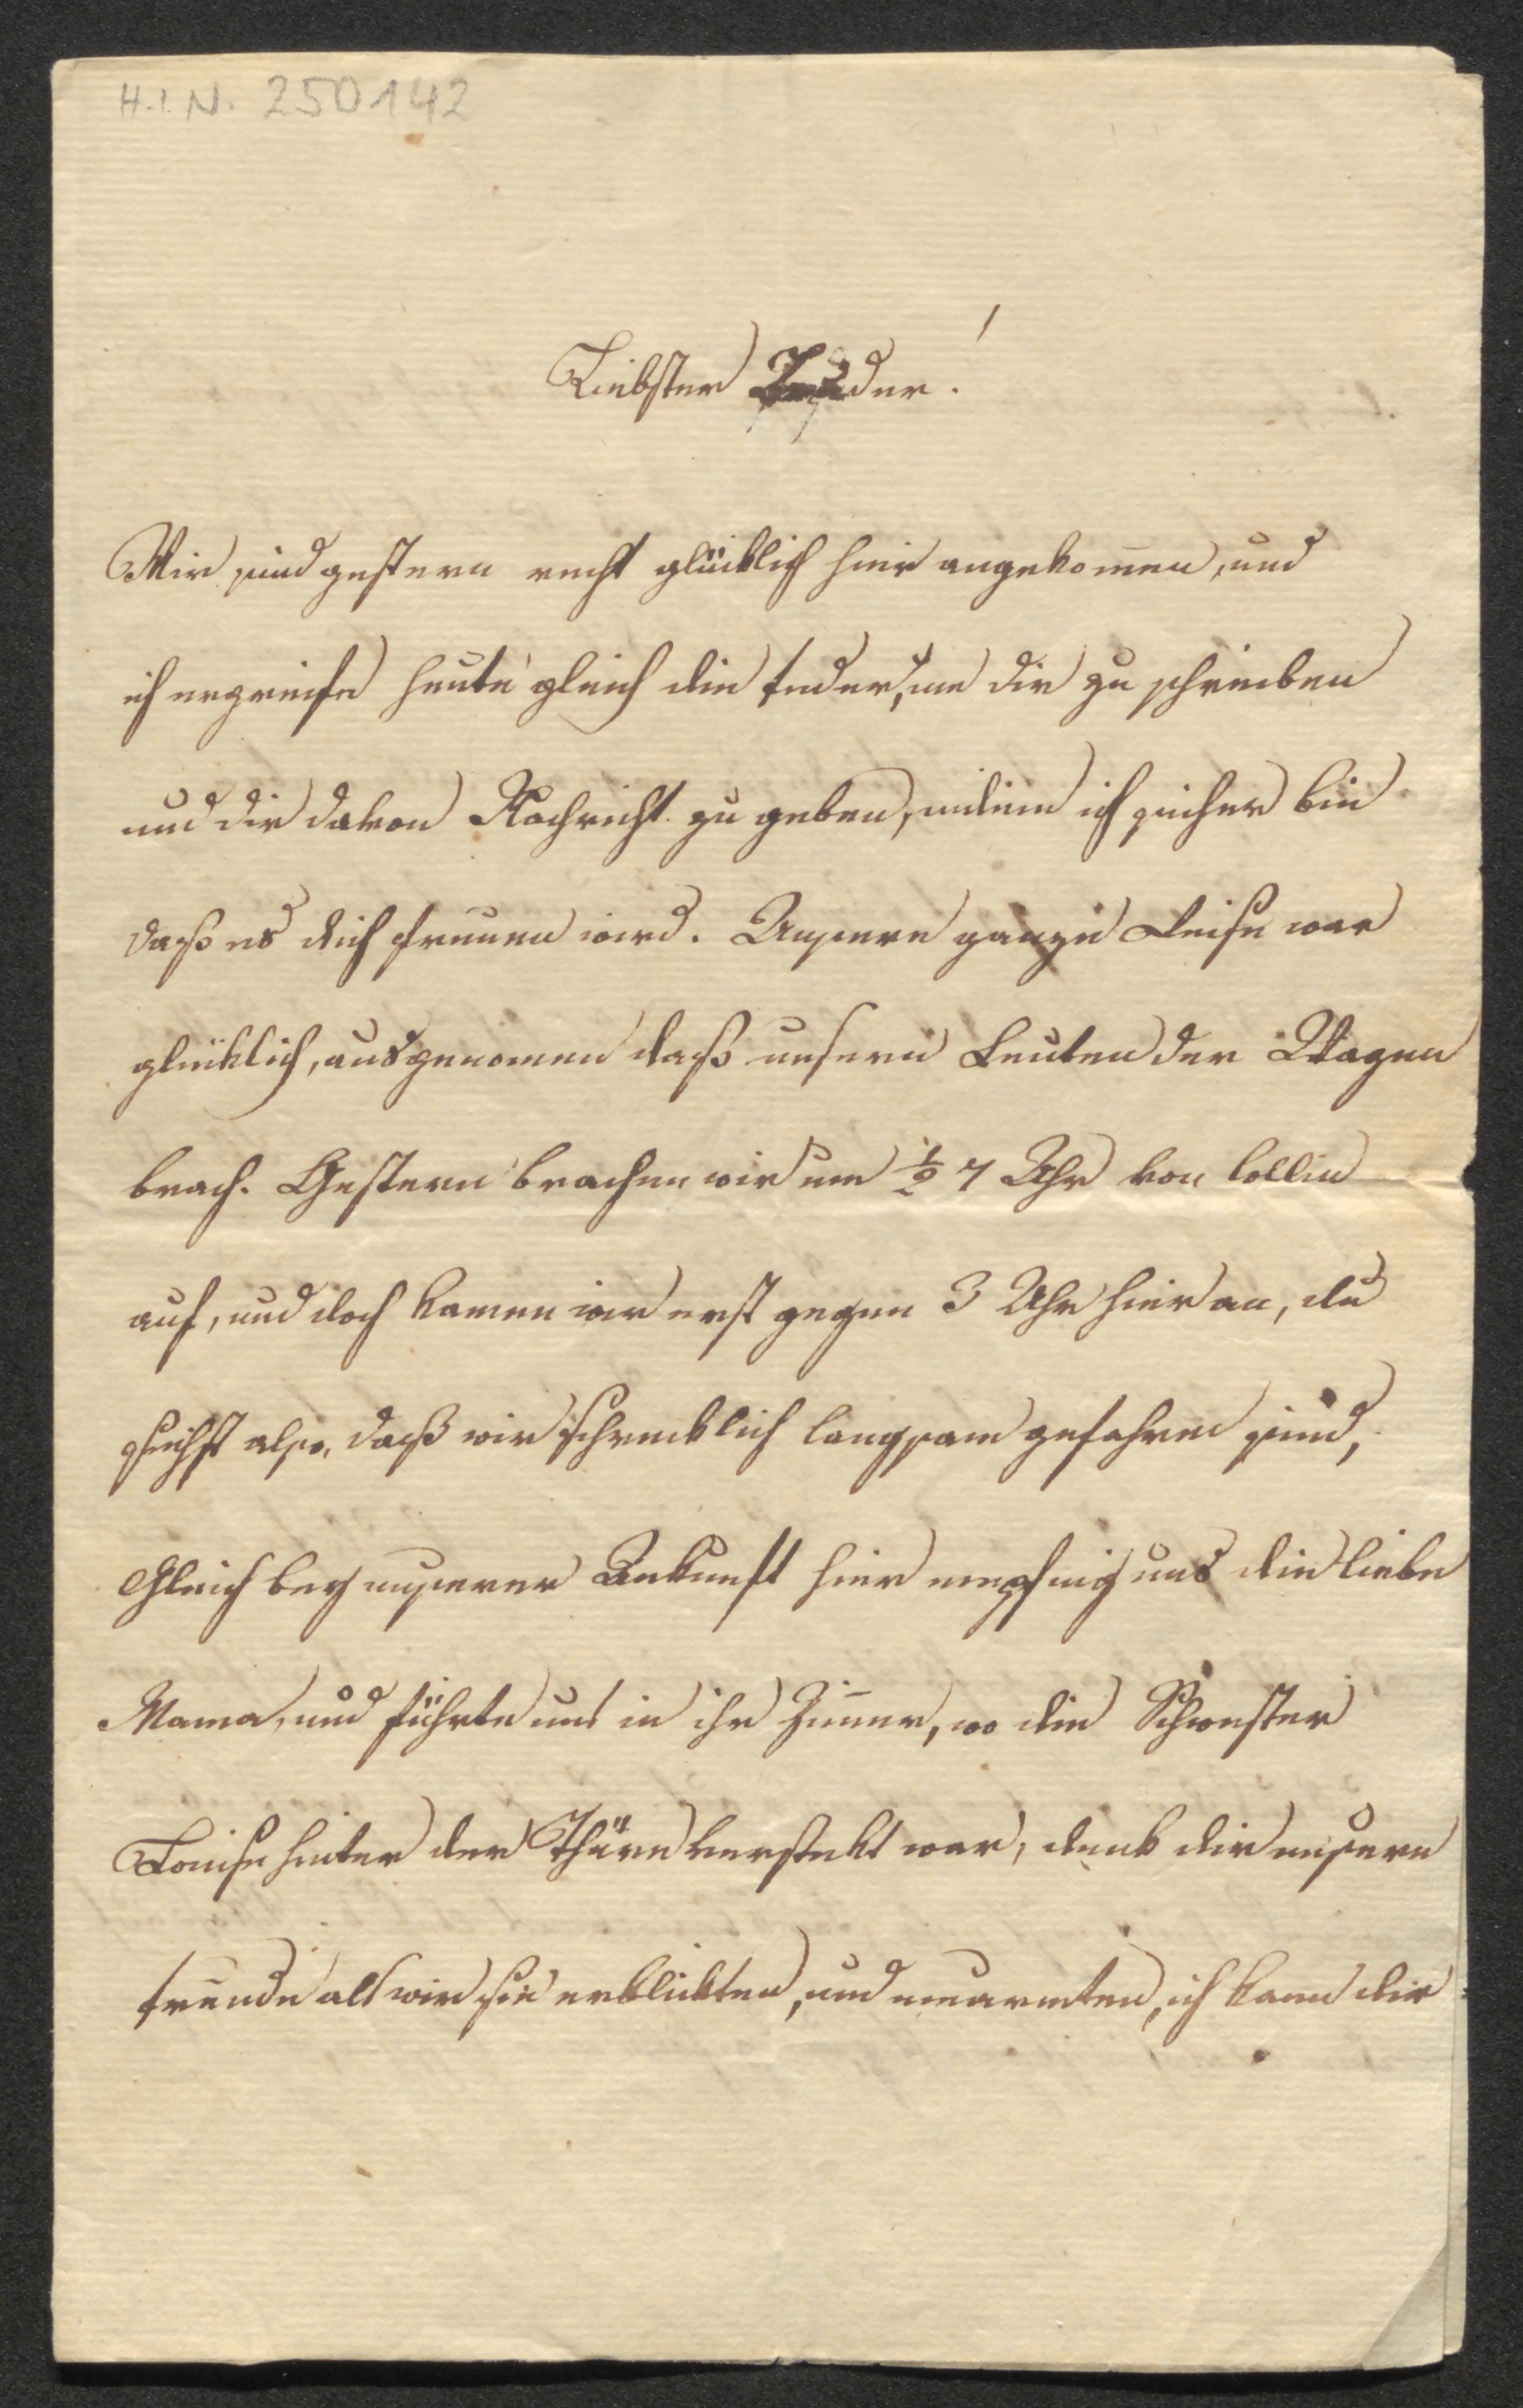 H.I.N. 250142
Liebster Bruder!
Wir sind gestern recht glücklich hier angekom̅en, und
ich ergreife heute gleich die Feder, um dir zu schreiben
und dir davon Nachricht zu geben, indem ich sicher bin
daß es dich freuen wird. Unsere ganze Reise war
glücklich, ausgenomen daß unsern Leuten der Wagen
brach. Gestern brachen wir um ½ 7 Uhr von Collin
auf, und doch kamen wir erst gegen 3 Uhr hier an, du
siehst also, daß wir schrecklich langsam gefahren sind,
Gleich bey unserer Ankunft hier empfing uns die liebe
Mama, und führte uns in ihr Zim̅er, wo die Schwester
Louise hinter der Thüre versteckt war, denk dir unsere
Freude als wir sie erblickten, und umarmten, ich kann dir